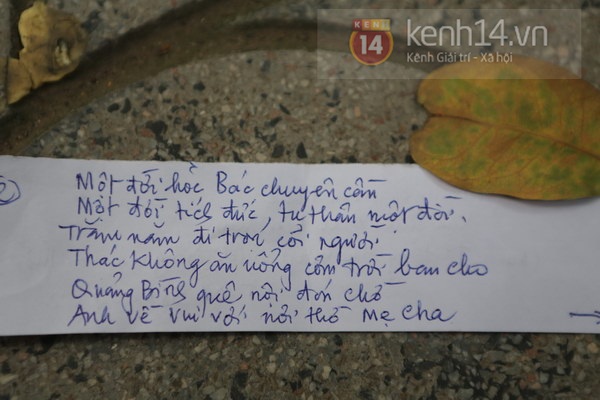 KÊNH 14
kenh14.vn
Kênh Giải trí - Xã hội
2
Một đời học Bác chuyên cần
Một đời tích đức, tu thân một đời.
Trăm năm đi trọn cõi người
Thác không ăn uống cơm trời ban cho
Quảng Bình quê nội đón chờ
Anh về vui với nơi thờ Mẹ cha